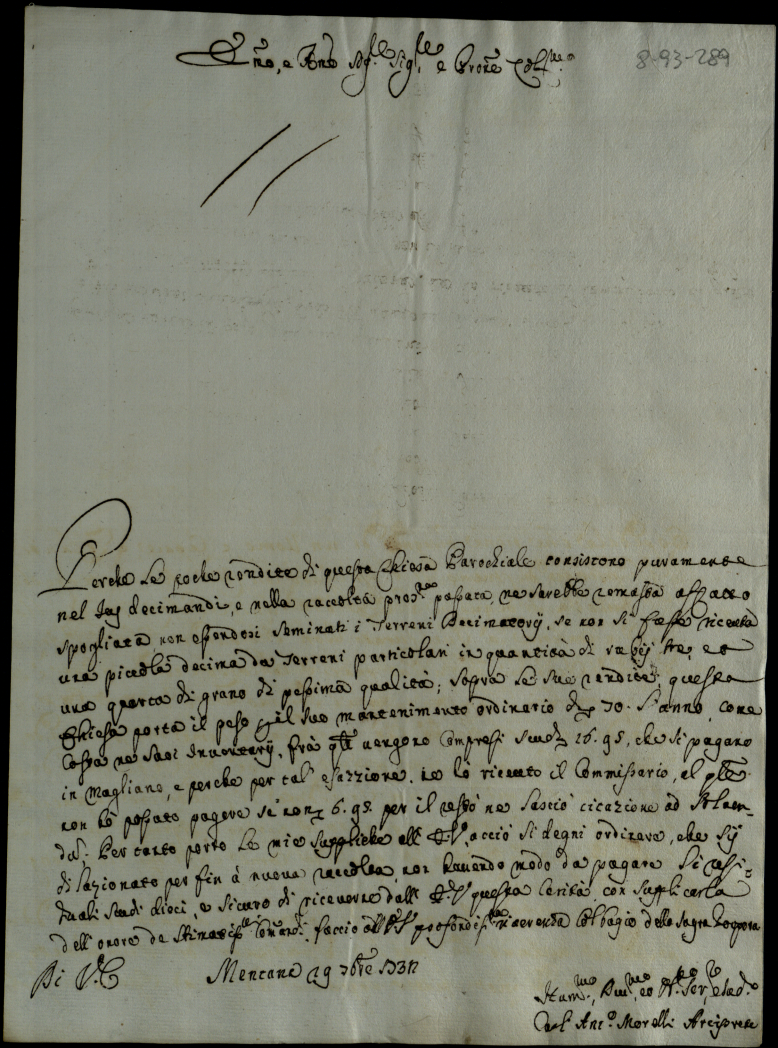 Emo, e Rmo Sigre Sigre e Prone Colmo
8-93-289
Perche le poche rendite di questa Chiesa Parochiale consistono puramente
nel Jus decimandi, e nella raccolta pross.ma passata, ne sarebbe remasta affatto
spogliata non essendosi seminati i Terreni Decimatorij, se non si fosse riceuta
una picciola decima da Terreni particolari in quantità di rubij tre, et
una quarta di grano di pessima qualità; sopra le sue rendite, questa
Chiesa porta il peso pel suo mantenimento ordinario di 70. l'anno, come
costa ne suoi Inventarij, frà qti vengono compresi scudi 16. 95, che si pagano
in Magliano, e perche per tal' esazzione, ne hò riceuto il Commissario, al qle
non hò possuto pagare se non 6. 95 per il resto ne lasciò citazione ad
Per tanto porto le mie suppliche all' E.V. acciò si degni ordinare, che sij
dilazionato per fin à nuova raccolta, non havendo modo da pagare li resi-
duali scudi dieci, e sicuro di riceverne dall' E.V. questa Carità, con supplicarla
dell' onore de stimatiss.mi Comandi, faccio all' E.V. profondiss.ma riverenza col bagio della Sagra Porpora
Di V.E.
Mentana 29 7bre 1731
Hum.mo, Dev.mo, et Obl.mo Ser.re
Ant.o Morelli Arciprete